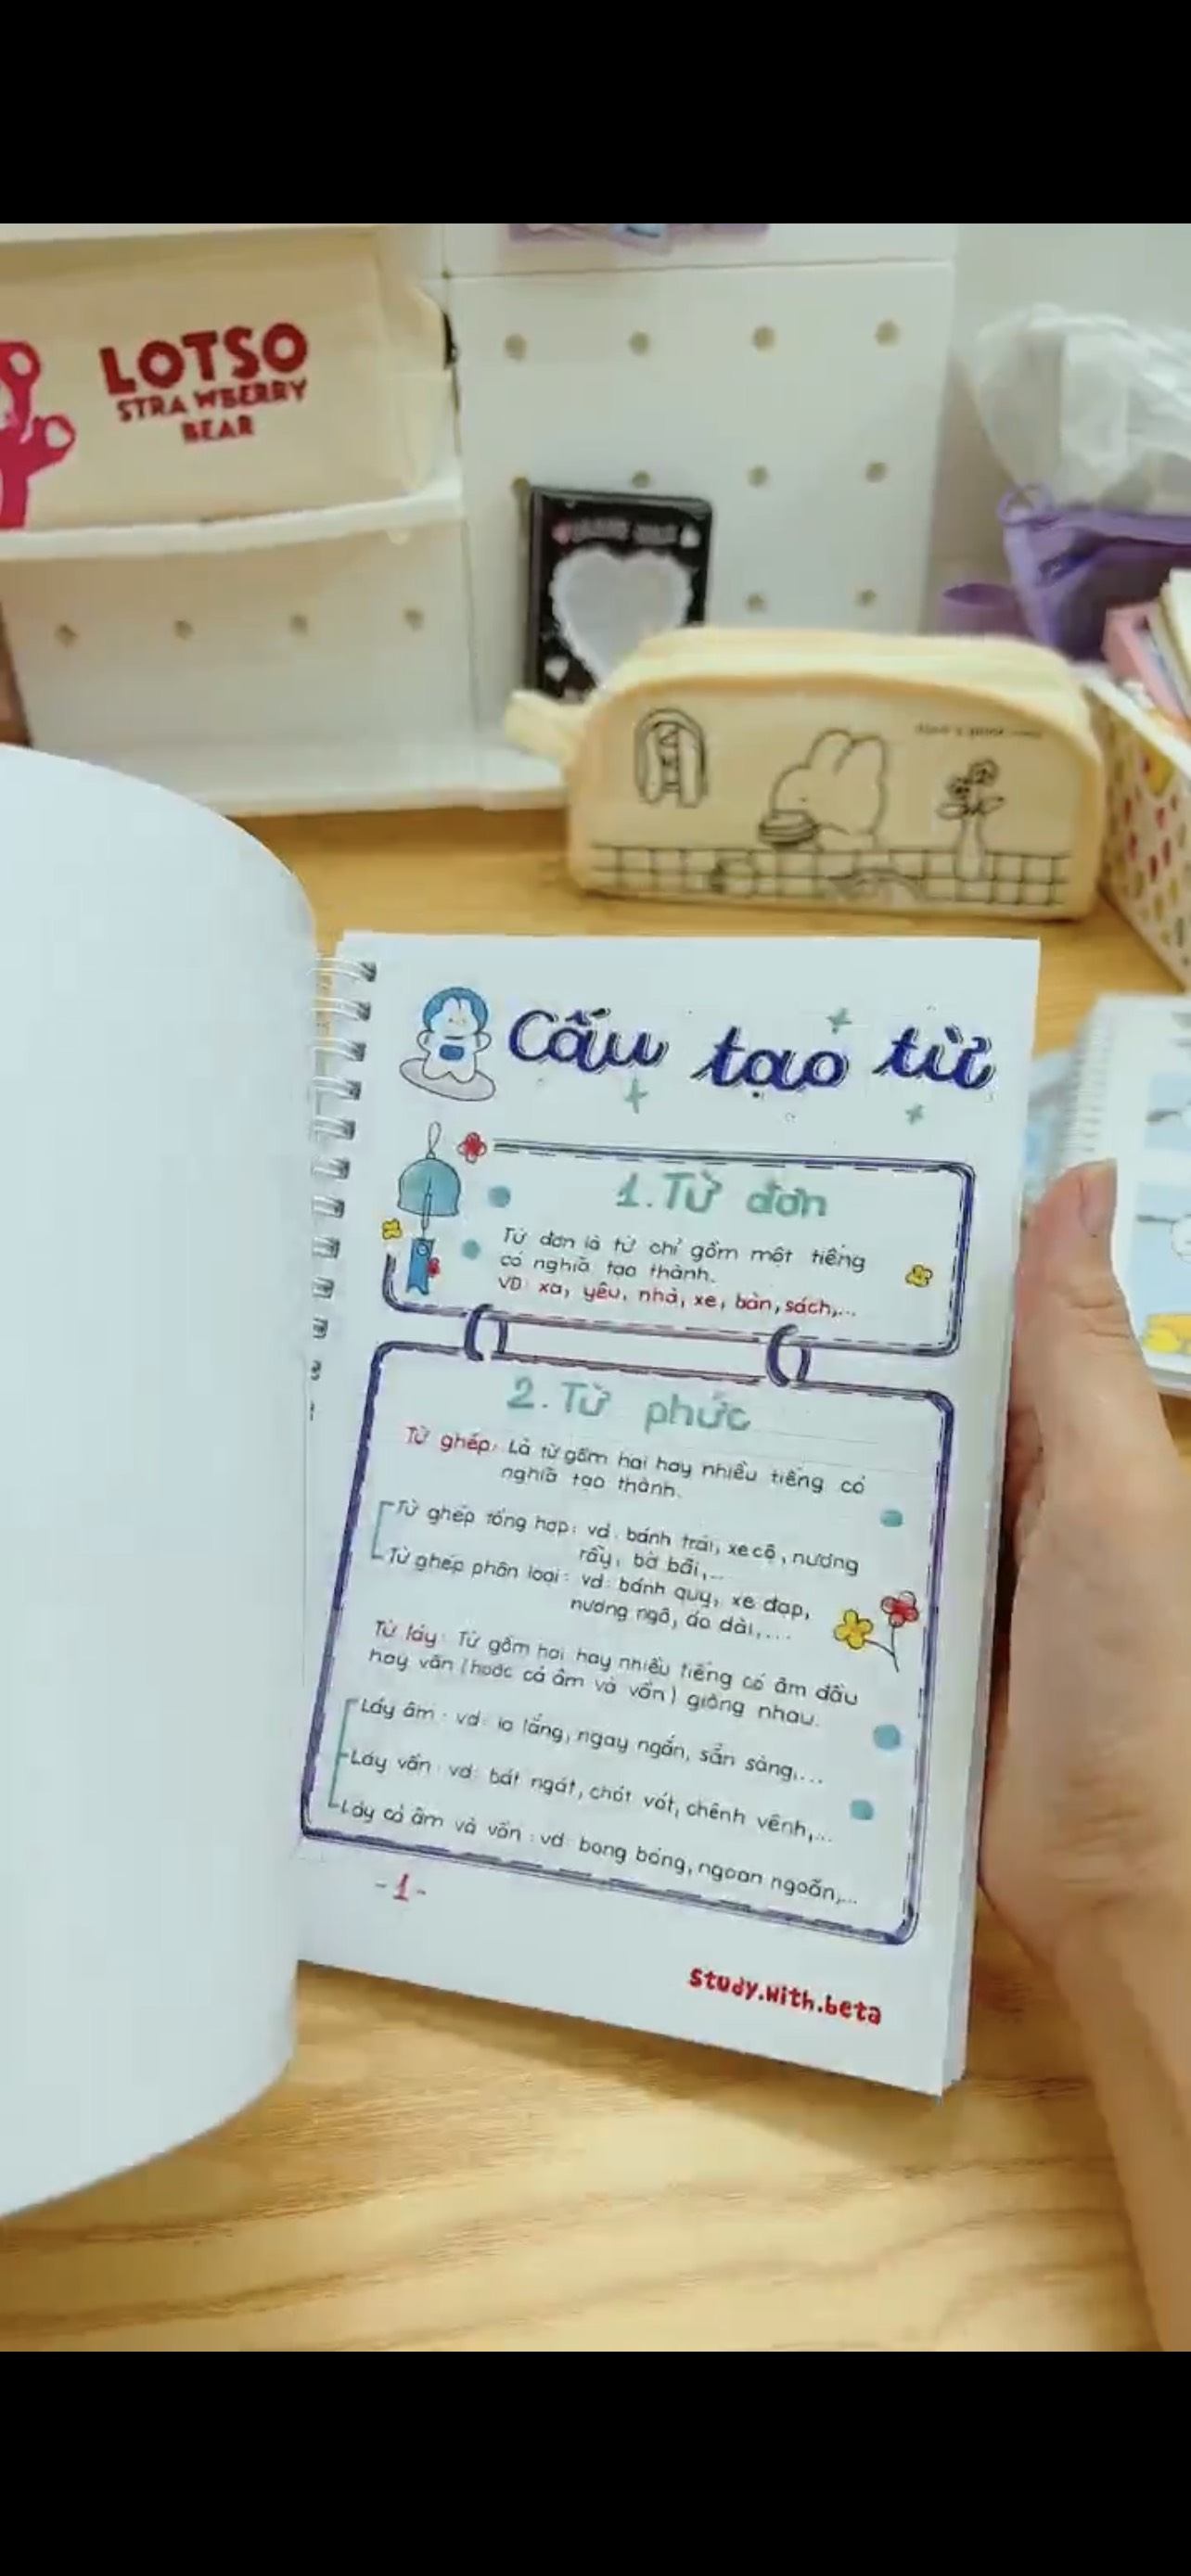 LOTSO
STRAWBERRY
BEAR
Cấu tạo từ
1. Từ đơn
Từ đơn là từ chỉ gồm một tiếng
có nghĩa tạo thành.
VD: xa, yêu, nhà, xe, bàn, sách,...
2. Từ phức
Từ ghép: Là từ gồm hai hay nhiều tiếng có
nghĩa tạo thành.
Từ ghép tổng hợp: vd: bánh trái, xe cộ, nương
rẫy, bờ bãi,...
Từ ghép phân loại: vd: bánh quy, xe đạp,
nương ngô, áo dài,...
Từ láy: Từ gồm hai hay nhiều tiếng có âm đầu
hay vần (hoặc cả âm và vần) giống nhau.
Láy âm: vd: lo lắng, ngay ngắn, sẵn sàng,...
Láy vần: vd: bát ngát, chót vót, chênh vênh,...
Láy cả âm và vần: vd: bong bóng, ngoan ngoãn,...
-1-
Study.with.beta